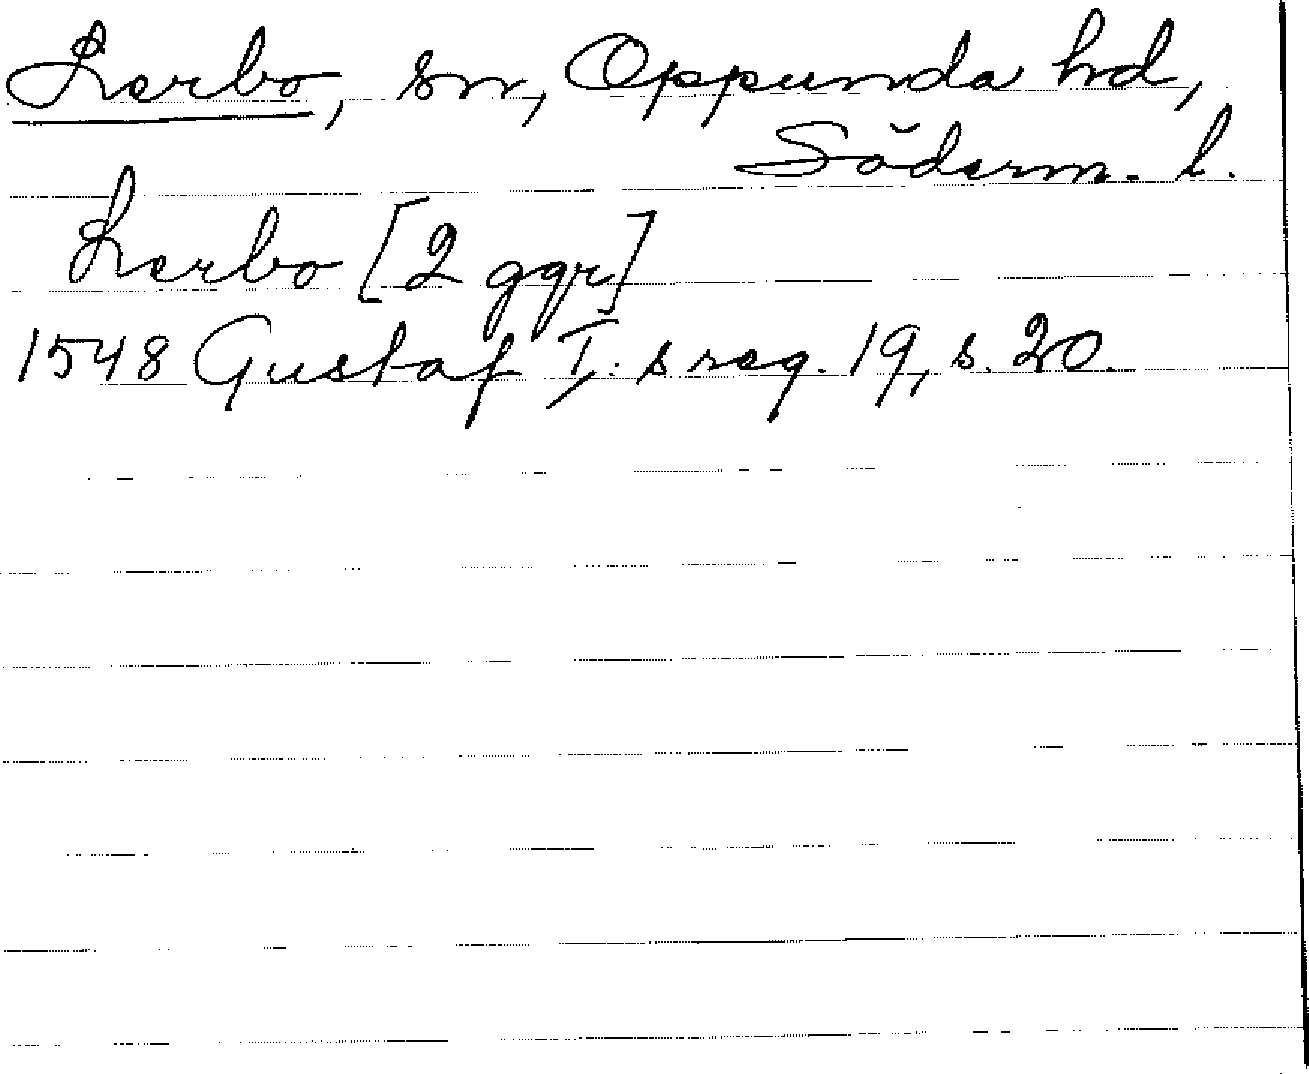 Lerbo, sn, Oppunda hd,
Söderm. l.
Lerbo [2 ggr]
1548 Gustaf I:s reg. 19, s. 20.